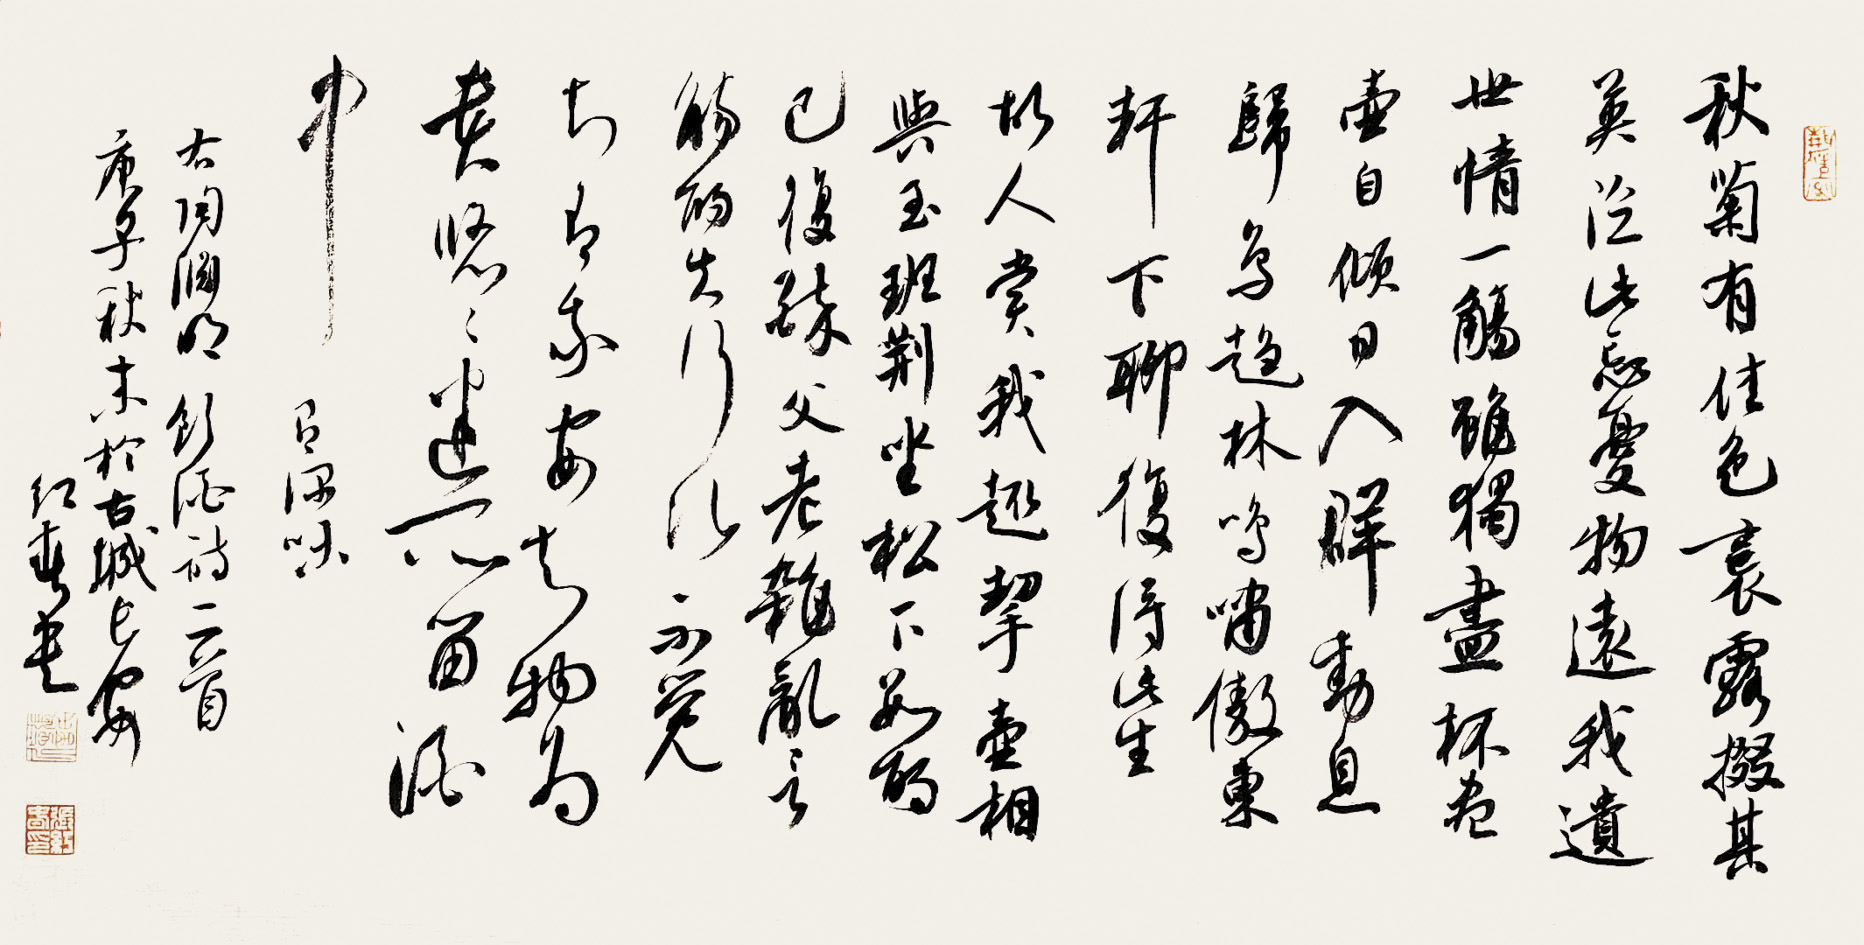 秋菊有佳色裛露掇其
英泛此忘憂物遠我遺
世情一觴雖獨盡杯盡
壺自傾日入群動息
歸鳥趨林鳴嘯傲東
軒下聊復得此生
故人賞我趣挈壺相
與至班荊坐松下數酌
已復醉父老雜亂言
觴酌失行次不覺
知有我安知物為
貴悠々迷所留酒
中有深味
右陶淵明飲酒詩二首
庚子秋末於古城長安
紅春書
張紅春印